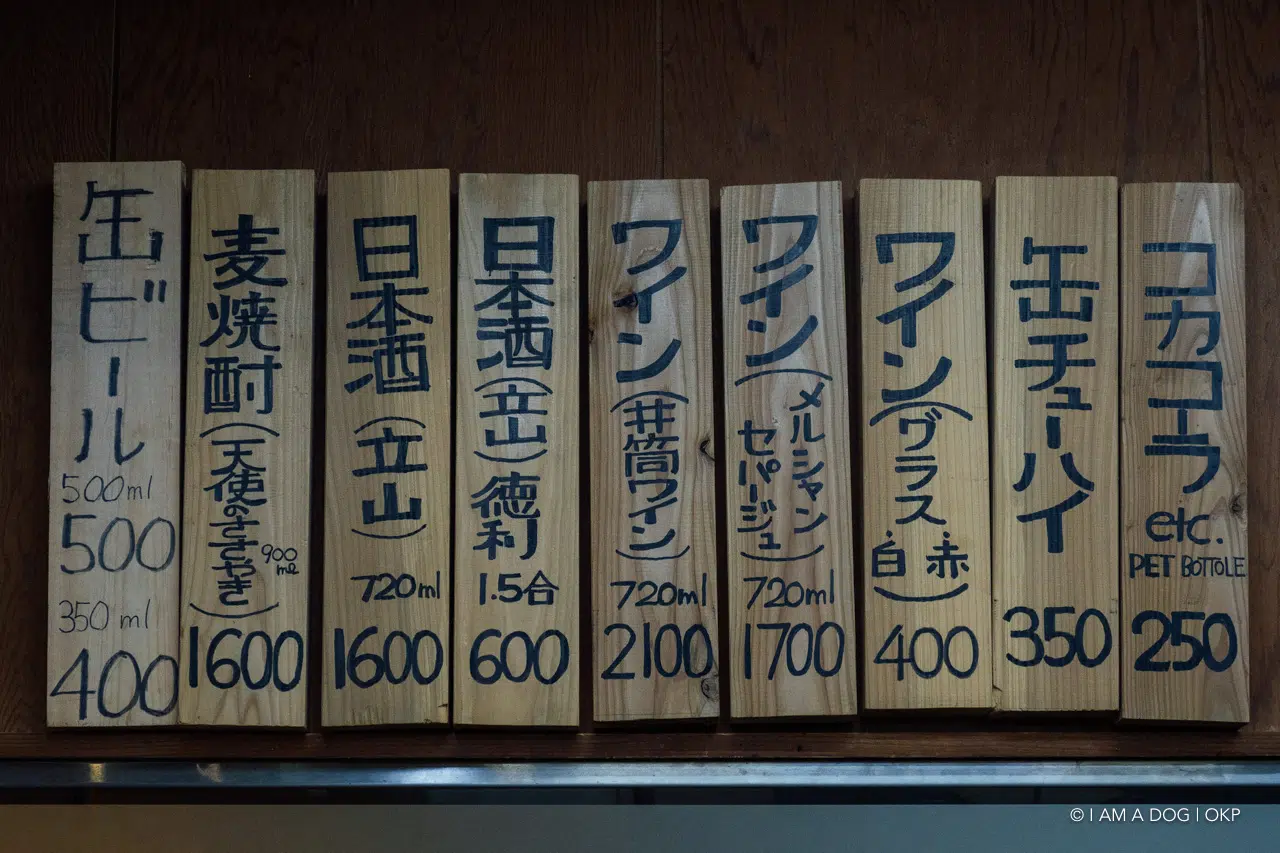 缶ビール
500ml
500
350ml
400
麦焼酎
(天使のささやき)
900ml
1600
日本酒
(立山)
720ml
1600
日本酒
(立山)
徳利
1.5合
600
ワイン
(井筒ワイン)
720ml
2100
ワイン
(メルシャン
セパージュ)
720ml
1700
ワイン
(グラス
赤・
白・)
400
缶チューハイ
350
コカコーラ
etc.
PET BOTTOLE
250
© I AM A DOG | OKP